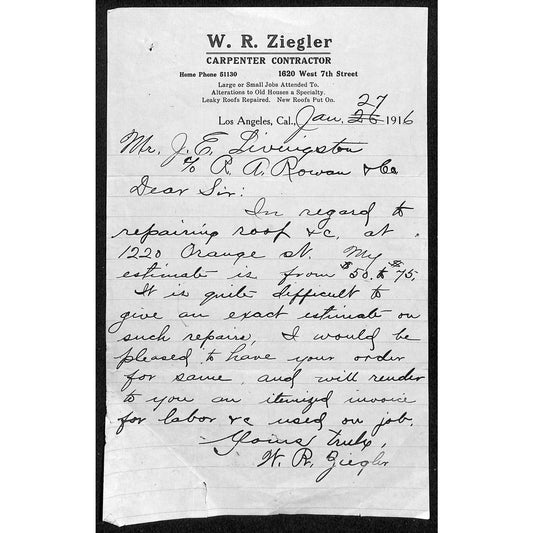 W. R. Ziegler
CARPENTER CONTRACTOR
Home Phone 51130 1620 West 7th Street
Large or Small Jobs Attended To.
Alterations to Old Houses a Specialty.
Leaky Roofs Repaired. New Roofs Put On.
27
Los Angeles, Cal., Jan. 26 1916
Mr. J. E. Livingston
c/o R. A. Rowan & Co
Dear Sir:
In regard to
repairing roof &c. at
1220 Orange st. My
estimate is from $50. to $75.
It is quite difficult to
give an exact estimate on
such repairs, I would be
pleased to have your order
for same, and will render
to you an itemized invoice
for labor &c used on job.
Yours truly,
W. R. Ziegler